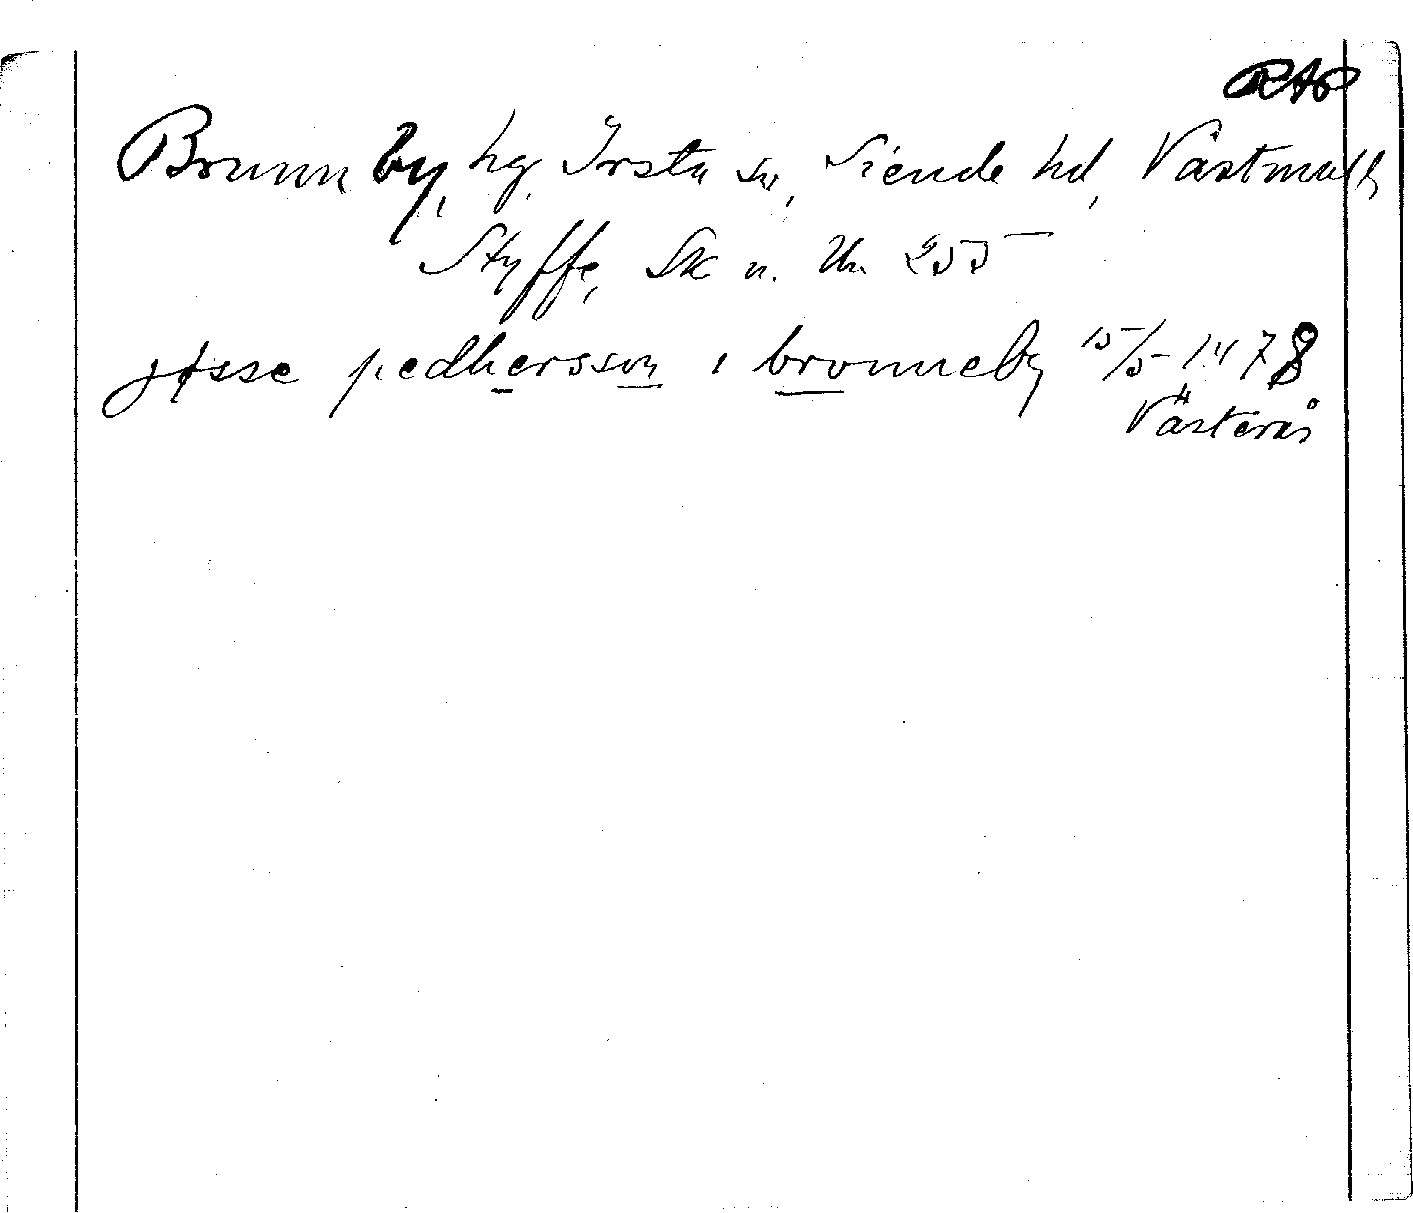 RAP
Brunnby, hg, Irsta sn, Siende hd, Västmanl
Styffe, Sk u. Un. 255
jøsse pedhersson i bronneby 15/5 1478
Västerås